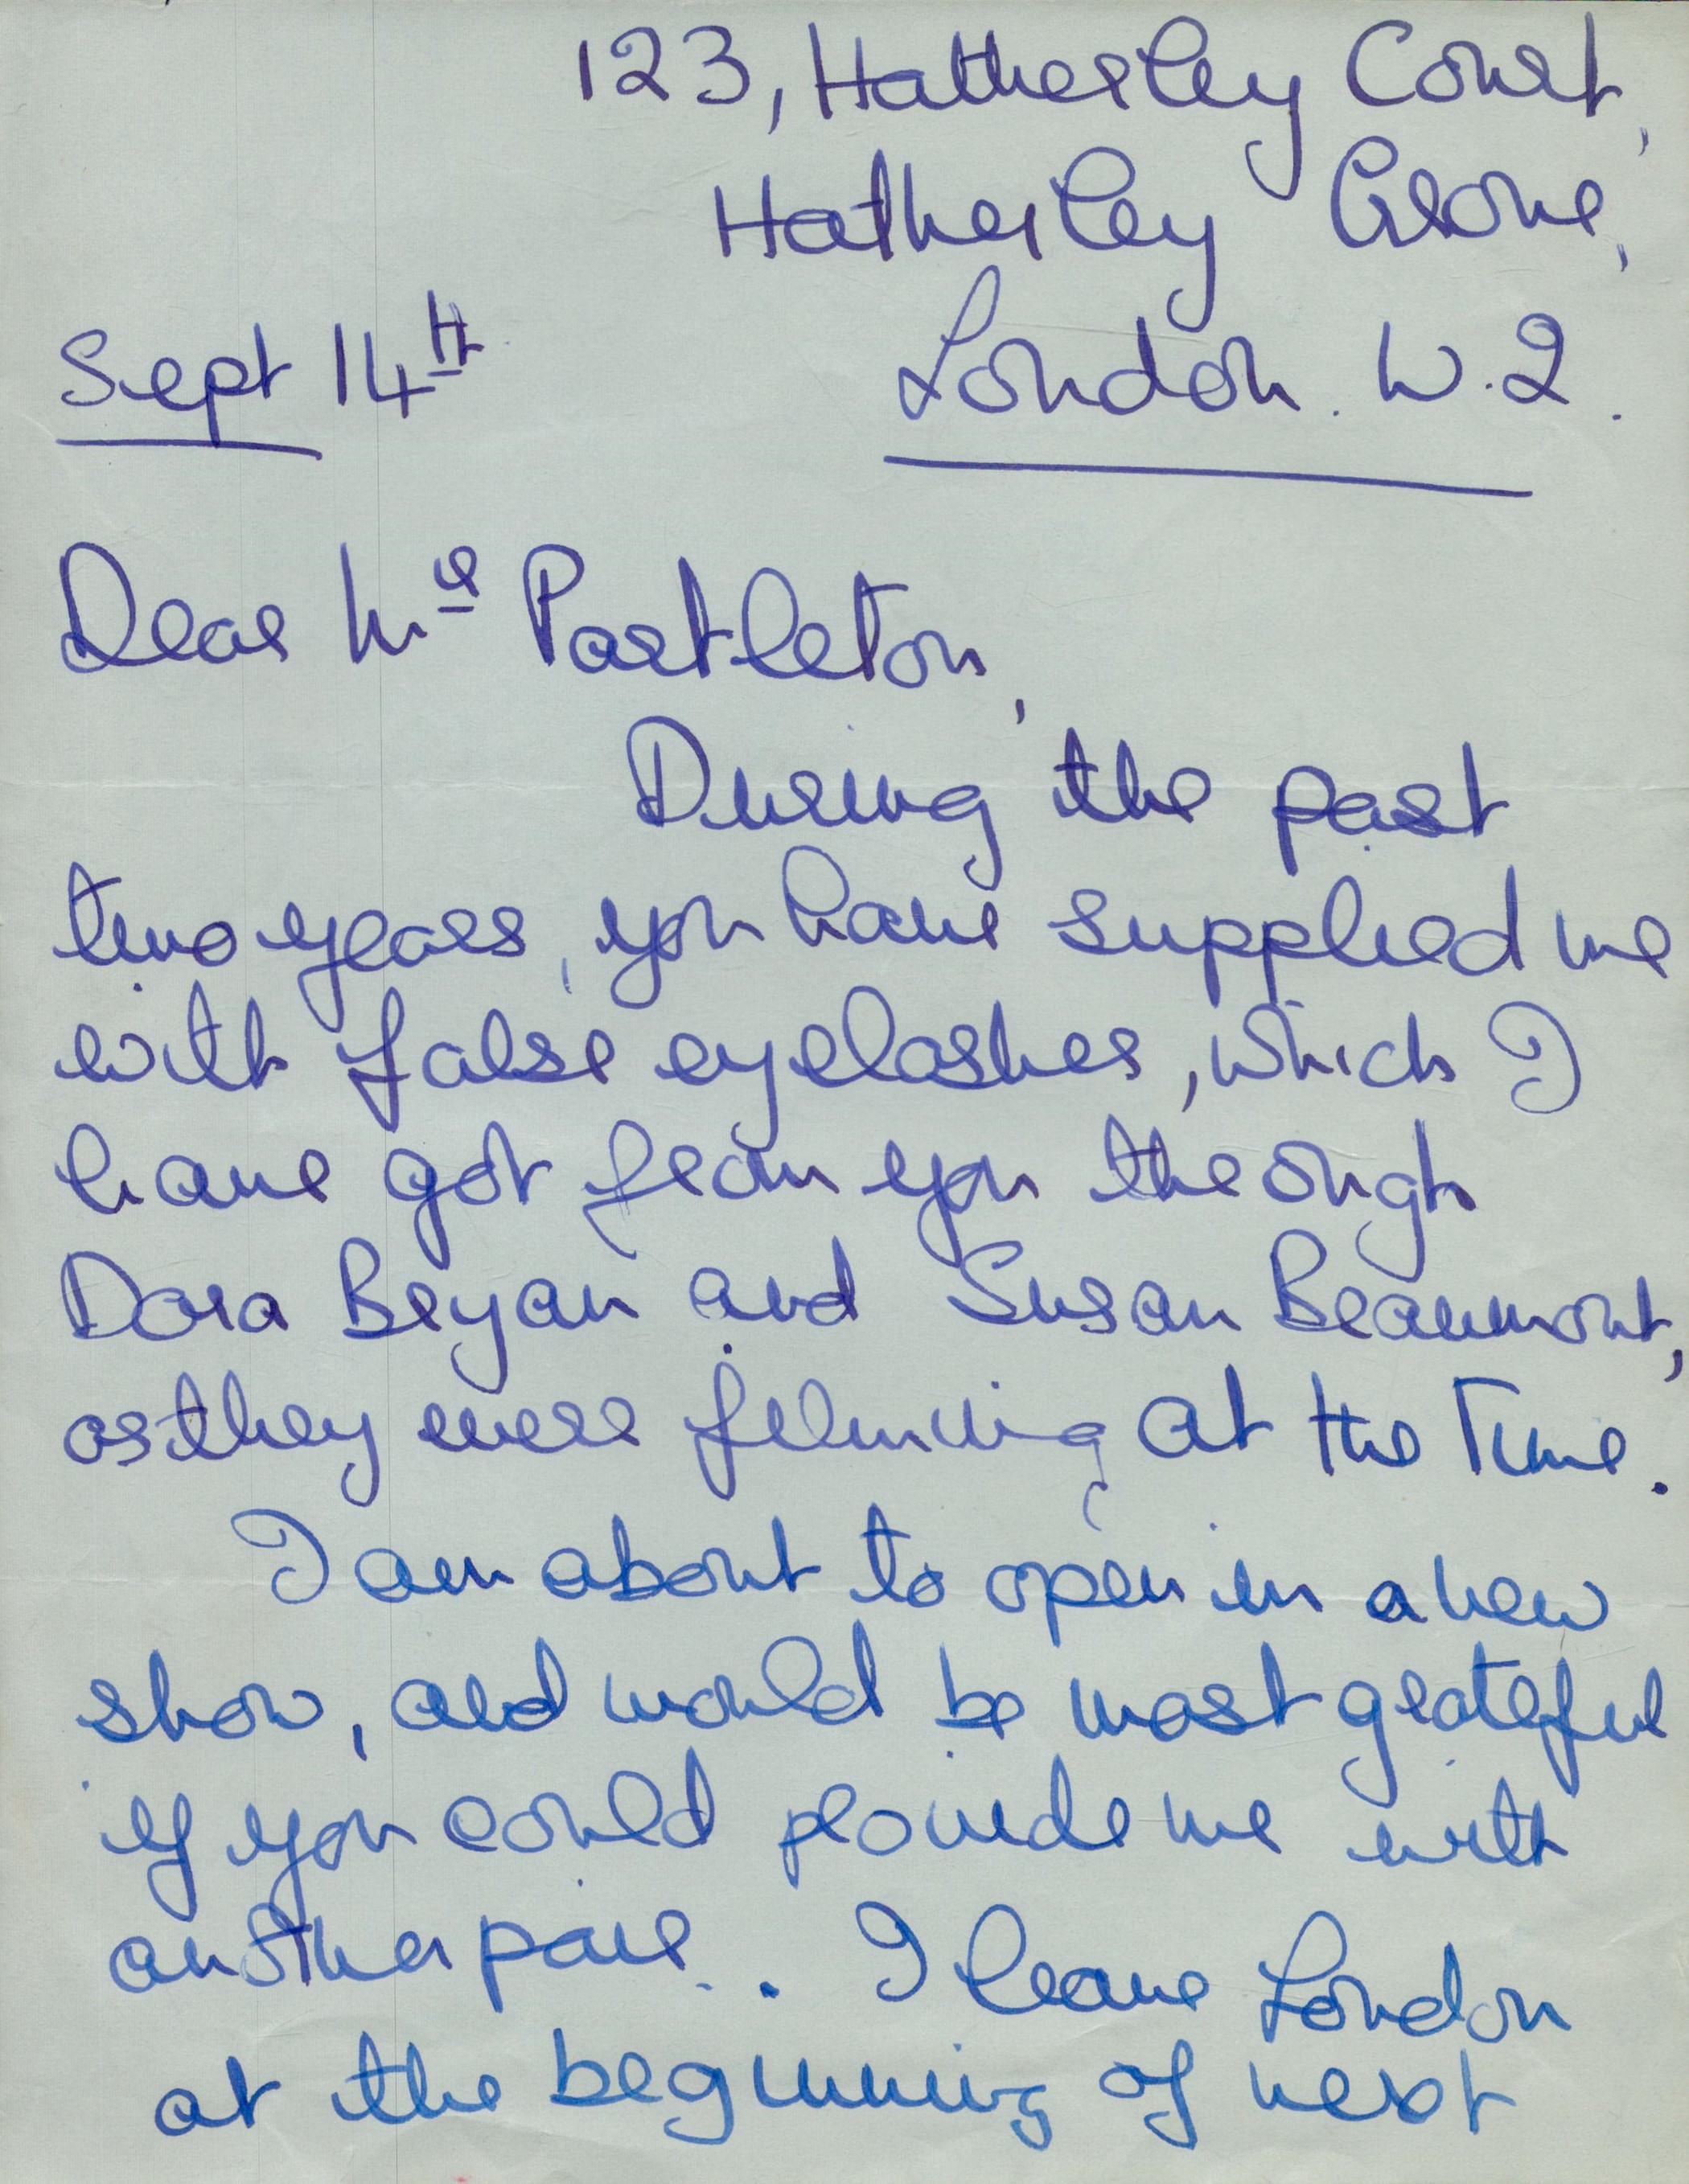 123, Hatherley Court,
Hatherley Grove,
Sept 14th London. W.2.
Dear Mr Partleton,
During the past
two years, you have supplied me
with false eyelashes, which I
have got from you through
Dora Bryan and Susan Beaumont,
as they were filming at the time.
I am about to open in a new
show, and would be most grateful
if you could provide me with
another pair. I leave London
at the beginning of next